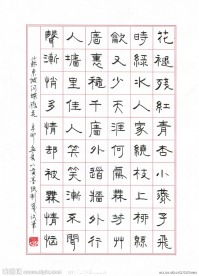 花褪残紅青杏小燕子飛
時綠水人家繞枝上柳綿
吹又少天涯何處無芳草
牆裏鞦韆牆外道牆外行
人牆裏佳人笑笑漸不聞
聲漸悄多情卻被無情惱
蘇東坡詞蝶戀花 辛卯